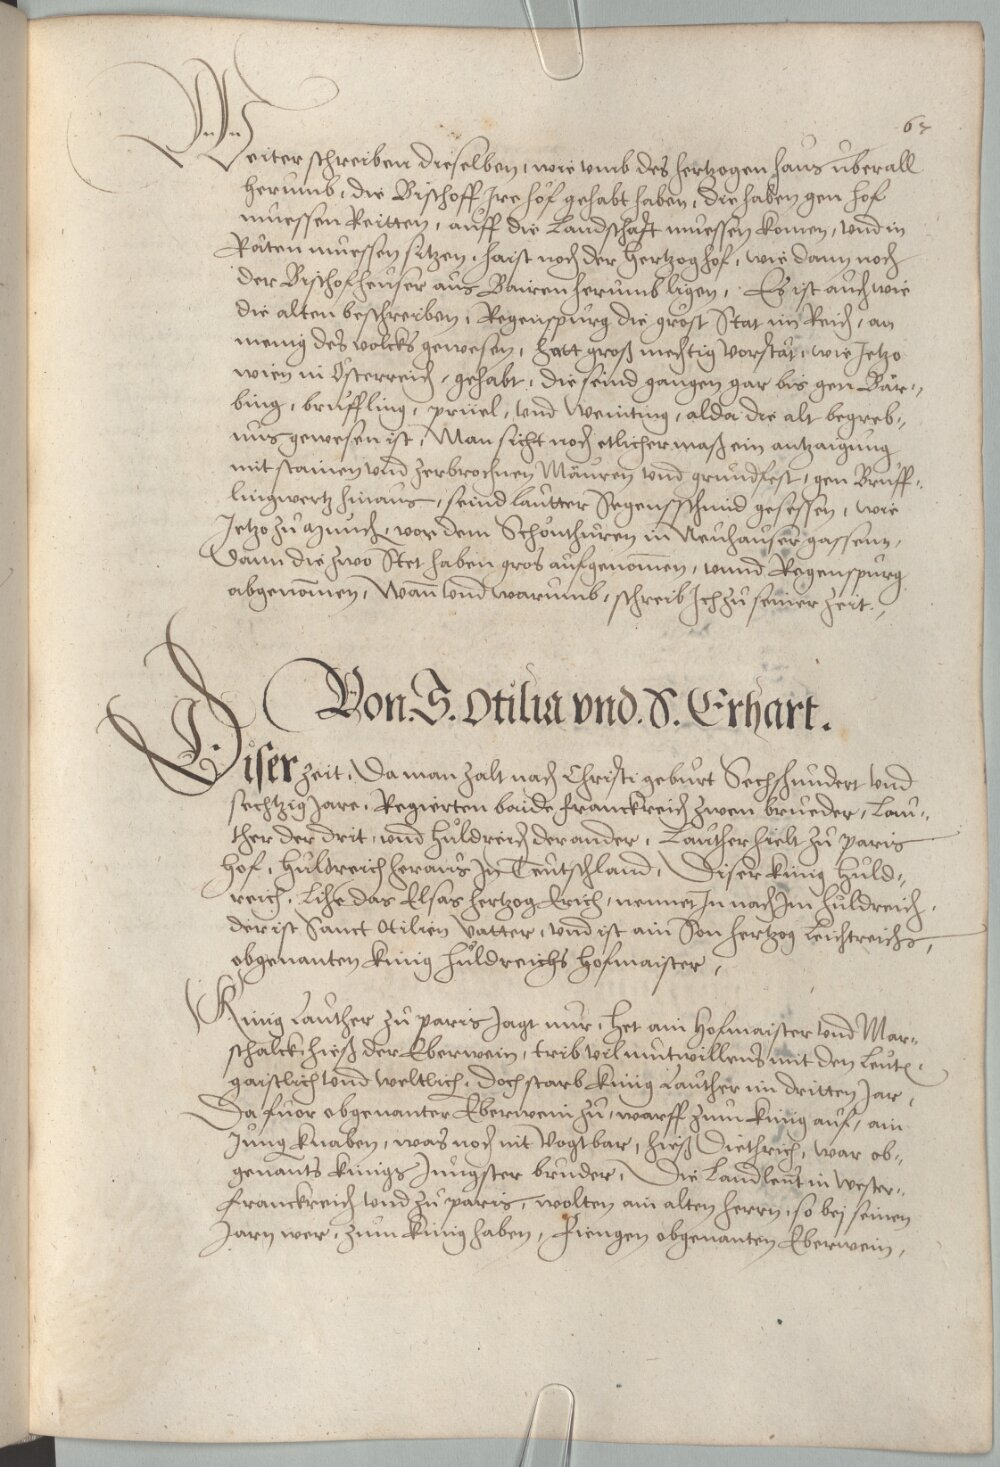 63
Weiter schreiben dieselben, wie vmb des hertzogen haus vberall
herumb, die Bischoff Ire höf gehabt haben, die haben gen hof
muessen Reitten, auff die Landschafft muessen komen, vnd in
Räten muessen sitzen, haist noch der hertzog hof, wie dann noch
der Bischof heuser aus Bairen herumb ligen, Es ist auch wie
die alten beschreiben, Regenspurg die gröst Stat im Reich, an
menig des volcks gewesen, hatt groß mechtig vorstät, wie Jetzo
wien in Österreich, gehabt, die seind gangen gar bis gen Bär-
bing, bruffling, prüel, vnd Weinting, alda die alt begreb-
nus gewesen ist, Man sicht noch etlicher maß ein antzaigung
mit stainen vnd zerbrochnen Mauren vnd grundfest, gen Bruff-
lingwertz hinaus, seind lautter Segensschmid gesessen, wie
Jetzo zu Munch, vor dem Schönthuren in Neuhauser gassenn,
Dann die zwo Stet haben gros aufgenomen, vnnd Regenspurg
abgenomen, Wann vnd warumb, schreib Ich zu seiner zeit,
Von. S. Otilia vnd. S. Erhart.
Diser zeit, Da man zalt nach Christi geburt Sechshundert vnd
sechtzig Jare, Regierten baide franckreich zwen brueder, Lau-
ther der drit, vnd huldreich der ander, Lauther hielt zu paris
hof, huldreich heraus In Teutschland, Diser kunig huld-
reich, Lihe das Elsas hertzog Erich, nennet In nach Im huldreich,
der ist Sanct Otilien vatter, vnd ist ain Son hertzog Leichtreichs,
obgenanten kunig huldreichs hofmaister,
Kunig Lauther zu paris Jagt nur, het ain hofmaister vnd Mar-
schalck, hieß der Eberwein, trib vil mutwillens mit den Leuten
gaistlich vnd weltlich, doch starb kunig Lauther im dritten Jar,
Da fuor obgenanter Eberwein zu, warff zum kunig auf, ain
Jung knaben, was noch nit Vogtbar, hieß Diethrich, war ob-
genants kunigs Jungster bruder, Die Landleut in wester-
franckreich vnd zu paris, wolten ain alten herrn, so bej seinen
Jarn wer, zum kunig haben, fiengen obgenanten Eberwein,